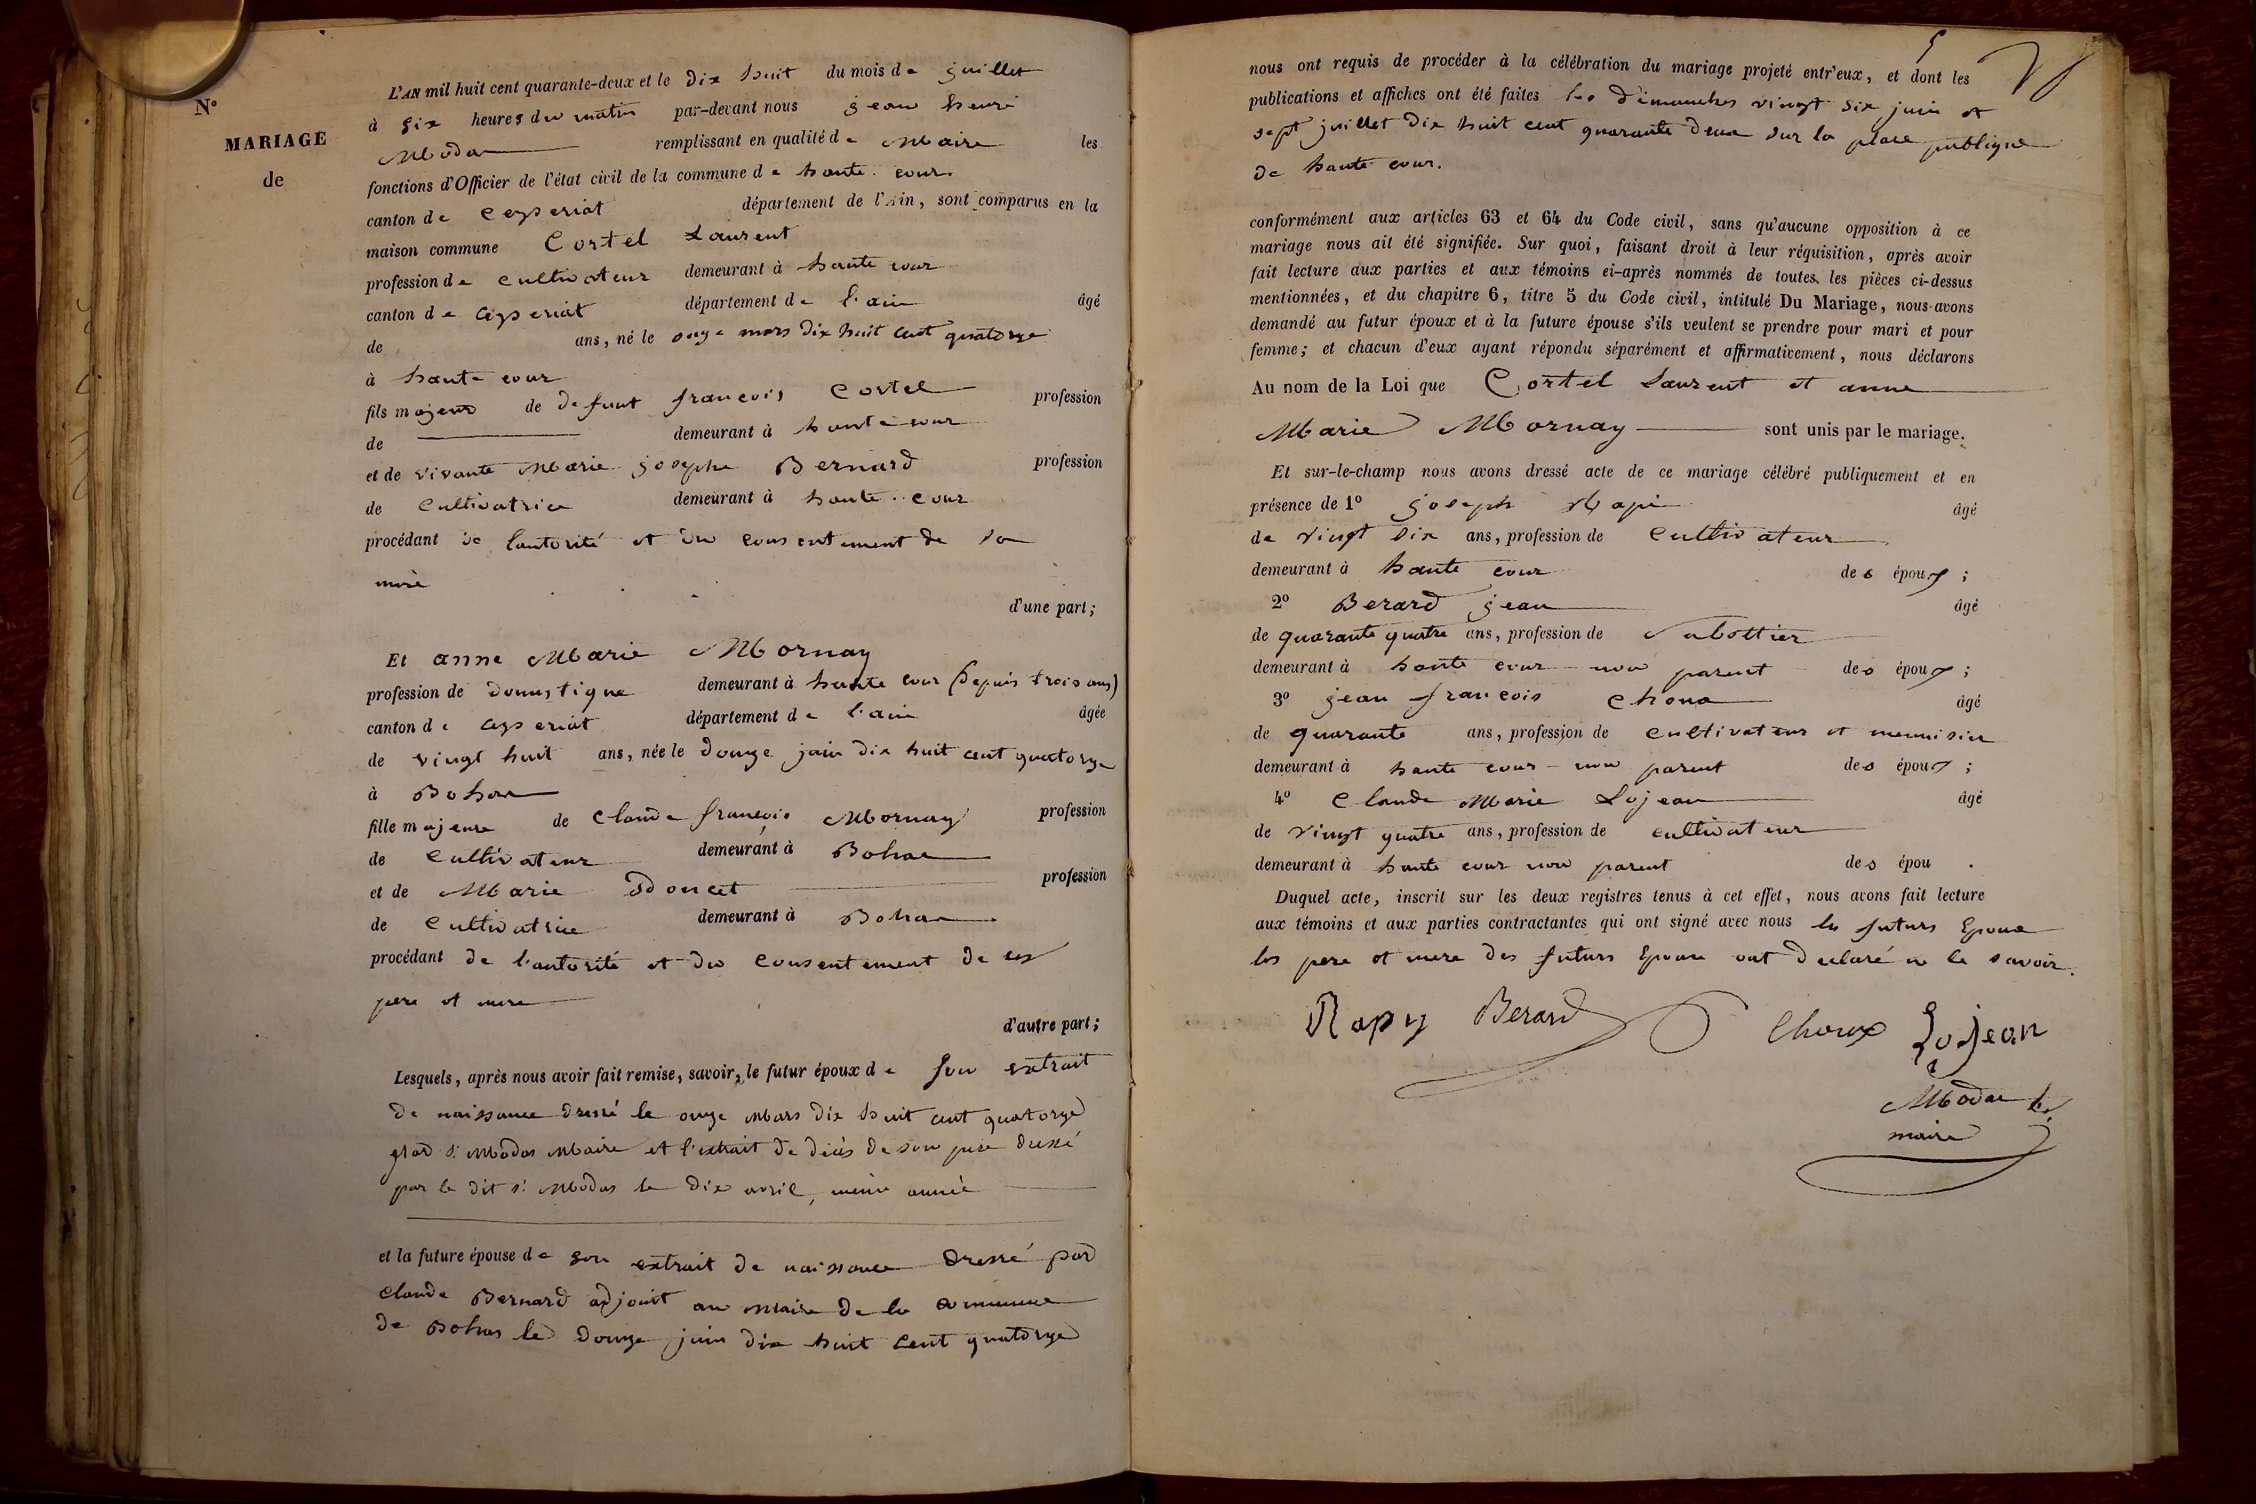 N°
MARIAGE
de
L'AN mil huit cent quarante-deux et le dix huit du mois de juillet
à six heures du matin par-devant nous jean henri
Modas remplissant en qualité de Maire les
fonctions d'Officier de l'état civil de la commune de haute cour
canton de Ceyseriat département de l'Ain, sont comparus en la
maison commune Cortel Laurent
profession de cultivateur demeurant à haute cour
canton de ceyseriat département de l'ain âgé
de ans, né le onze mars dix huit cent quatorze
à haute cour
fils majeur de defunt françois Cortel profession
de demeurant à haute cour
et de vivante Marie josephe Bernard profession
de Cultivatrice demeurant à haute cour
procédant de lautorité et du consentement de sa
mere
d'une part;
Et anne Marie Mornay
profession de domestique demeurant à haute cour (depuis trois ans)
canton de ceyseriat département de l'ain âgée
de vingt huit ans, née le douze juin dix huit cent quatorze
à Bohas
fille majeure de Claude françois Mornay profession
de Cultivateur demeurant à Bohas
et de Marie Doucet profession
de Cultivatrice demeurant à Bohas
procédant de l'autorité et du consentement de ses
pere et mere
d'autre part;
Lesquels, après nous avoir fait remise, savoir, le futur époux de son extrait
de naissance dressé le onze Mars dix huit cent quatorze
par Sr Modas Maire et l'extrait de décès de son pere dressé
par le dit Sr Modas le dix avril, meme année
et la future épouse de son extrait de naissance dressé par
Claude Bernard adjoint au Maire de la commune
de Bohas le douze juin dix huit cent quatorze
5
nous ont requis de procéder à la célébration du mariage projeté entr'eux, et dont les
publications et affiches ont été faites les dimanches vingt six juin et
sept juillet dix huit cent quarante deux sur la place publique
de haute cour.
conformément aux articles 63 et 64 du Code civil, sans qu'aucune opposition à ce
mariage nous ait été signifiée. Sur quoi, faisant droit à leur réquisition, après avoir
fait lecture aux parties et aux témoins ci-après nommés de toutes les pièces ci-dessus
mentionnées, et du chapitre 6, titre 5 du Code civil, intitulé Du Mariage, nous avons
demandé au futur époux et à la future épouse s'ils veulent se prendre pour mari et pour
femme; et chacun d'eux ayant répondu séparément et affirmativement, nous déclarons
Au nom de la Loi que Cortel Laurent et anne
Marie Mornay sont unis par le mariage.
Et sur-le-champ nous avons dressé acte de ce mariage célébré publiquement et en
présence de 1° joseph Rapi âgé
de vingt six ans, profession de Cultivateur
demeurant à haute cour des époux ;
2° Berard jean âgé
de quarante quatre ans, profession de sabottier
demeurant à haute cour non parent des époux ;
3° jean françois Choux âgé
de quarante ans, profession de cultivateur et menuisier
demeurant à haute cour - non parent des époux ;
4° Claude Marie Lojean âgé
de vingt quatre ans, profession de cultivateur
demeurant à haute cour non parent des épou .
Duquel acte, inscrit sur les deux registres tenus à cet effet, nous avons fait lecture
aux témoins et aux parties contractantes qui ont signé avec nous les futurs Epoux
les pere et mere des futurs Epoux ont declaré ne le savoir.
Rapy Berard Choux Lojean
Modas le
maire